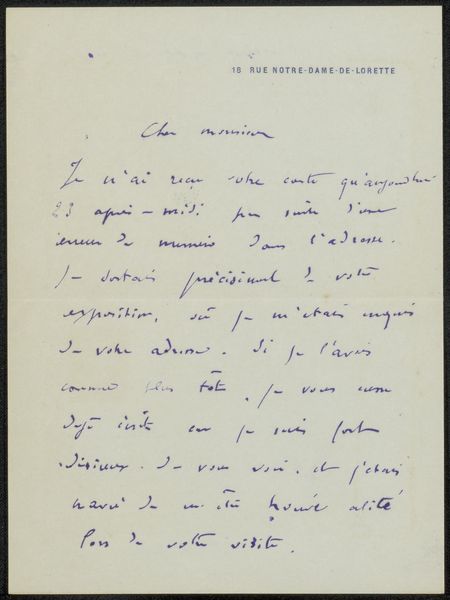 18 RUE NOTRE-DAME-DE-LORETTE
Cher monsieur
Je n'ai reçu votre carte qu'aujourd'hui
23 après-midi par suite d'une
erreur de numéro dans l'adresse.
Je sortais précisément de votre
exposition, où je m'étais enquis
de votre adresse. Si je l'avais
connue plus tôt, je vous eusse
déjà écrit car je suis fort
désireux de vous voir, et j'étais
navré de m'être trouvé alité
lors de votre visite.